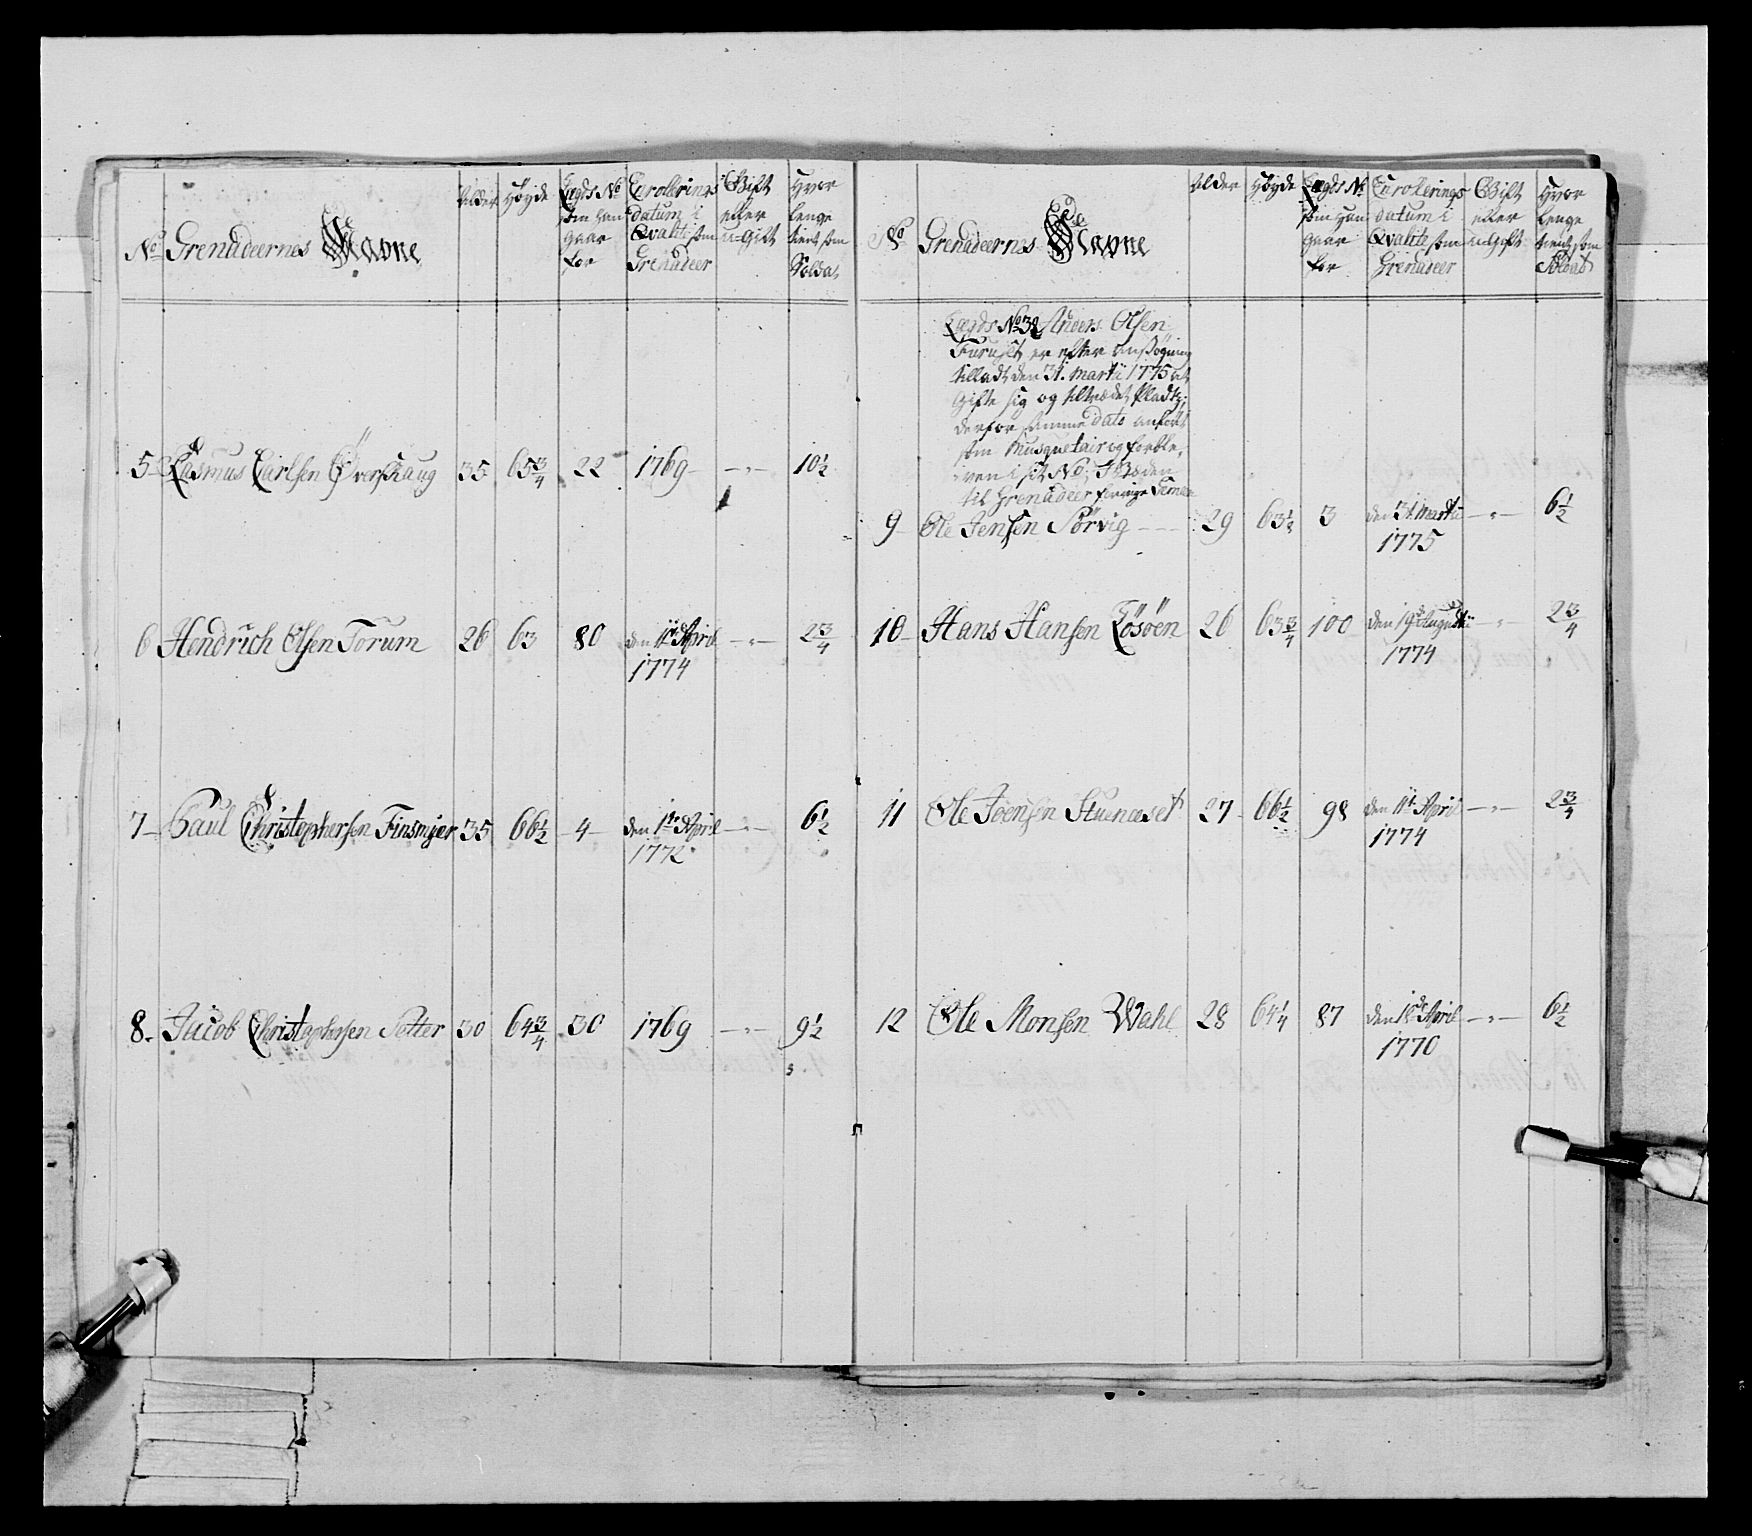 No Grenadeernes Navne
Alder
Høyde
Lægds No
som han
gaar
for
Enrollerings
datum i
Qvalite som
Grenadeer
Gift
eller
u-Gift
Hvor
lenge
tient som
Soldat
5 Rasmus Carlsen Øverskaug 35 65 3/4 22 1769 - " - 10 1/2
6 Hendrich Olsen Torum 26 63 80 den 1te April - " - 2 3/4
1774
7 Paul Christophersen Finsmjer 35 66 1/2 4 den 1te April - " - 6 1/2
1772
8. Jacob Christophersen Setter 30 64 3/4 30 1769 - " - 9 1/2
No Grenadeernes Navne
Alder
Høyde
Lægds No
som han
gaar
for
Enrollerings
datum i
Qvalite som
Grenadeer
Gift
eller
u-Gift
Hvor
lenge
tient som
Soldat
Lægds No 32 Anders Olsen
Furuset er efter ansøgning
tilladt den 31. Martii 1775 at
Gifte sig og tiltrædet Pladtz,
derfor samme dato anført
som Musquetair og forble,
ven i sit No;
til Grenadeer
9 Ole Jensen Sørvig 29 63 1/2 3 den 31 Martii - " - 6 1/2
1775
10 Hans Hansen Løsøen 26 63 3/4 100 den 19de Augusti - " 2 3/4
1774
11 Ole Joensen Stuenæset 27 66 1/2 98 den 1te April - " - 2 3/4
1774
12 Ole Monsen Wahl 28 64 1/4 87 den 18de April - " - 6 1/2
1770